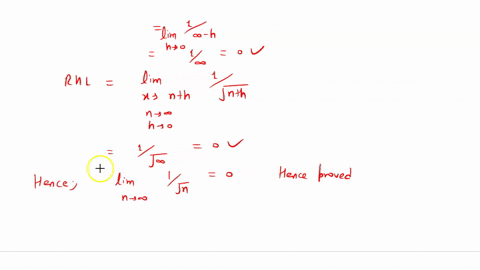 = lim h→0 1/∞-h
= 1/∞ = 0 ✓
RHL = lim x→n+h n→∞ h→0 1/√n+h
= 1/√∞ = 0 ✓
Hence; lim n→∞ 1/√n = 0 Hence proved